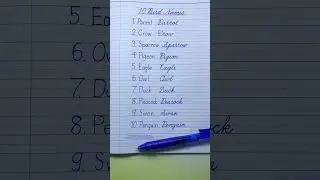 10 Bird Names
1. Parrot Parrot
2. Crow Crow
3. Sparrow Sparrow
4. Pigeon Pigeon
5. Eagle Eagle
6. Owl Owl
7. Duck Duck
8. Peacock Peacock
9. Swan Swan
10. Penguin Penguin